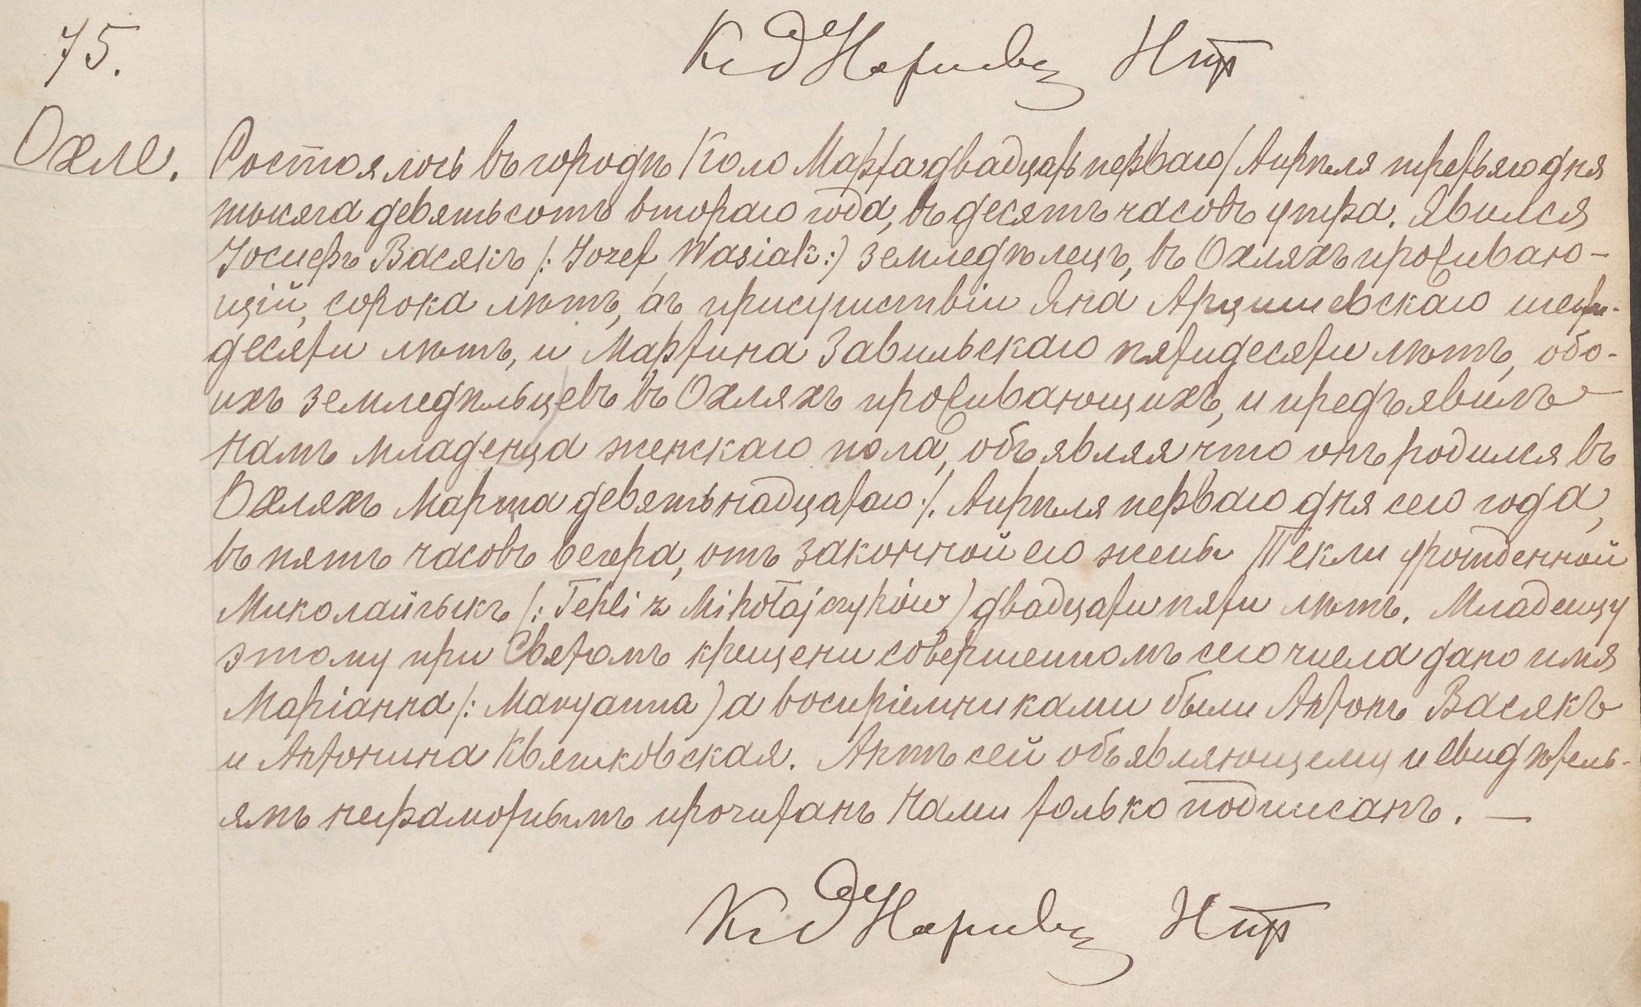 75.
Охле.
Состоялось въ городѣ Коло Марта двадцать перваго / Апрѣля третьяго дня
тысяча девятьсотъ втораго года, въ десять часовъ утра. Явился
Іосифъ Васякъ /: Jozef Wasiak :/ земледѣлецъ, въ Охляхъ проживаю-
щій, сорока лѣтъ, въ присутствіи Яна Арцишевскаго шести-
десяти лѣтъ, и Мартина Завильскаго пятидесяти лѣтъ, обо-
ихъ земледѣльцевъ въ Охляхъ проживающихъ, и предъявилъ
намъ младенца женскаго пола, объявляя что онъ родился въ
Охляхъ Марта девятьнадцатаго :/. Апрѣля перваго дня сего года,
въ пять часовъ вечера, отъ законной его жены Текли урожденной
Миколайчыкъ /: Tekli z Mikołajczyków ) двадцати пяти лѣтъ. Младенцу
этому при Святомъ крещени совершенномъ сего числа дано имя
Маріанна /: Maryanna ) а воспріемниками были Антонъ Васякъ
и Антонина Квятковская. Актъ сей объявляющему и свидѣтель-
ямъ неграмотнымъ прочитанъ Нами только подписанъ. —